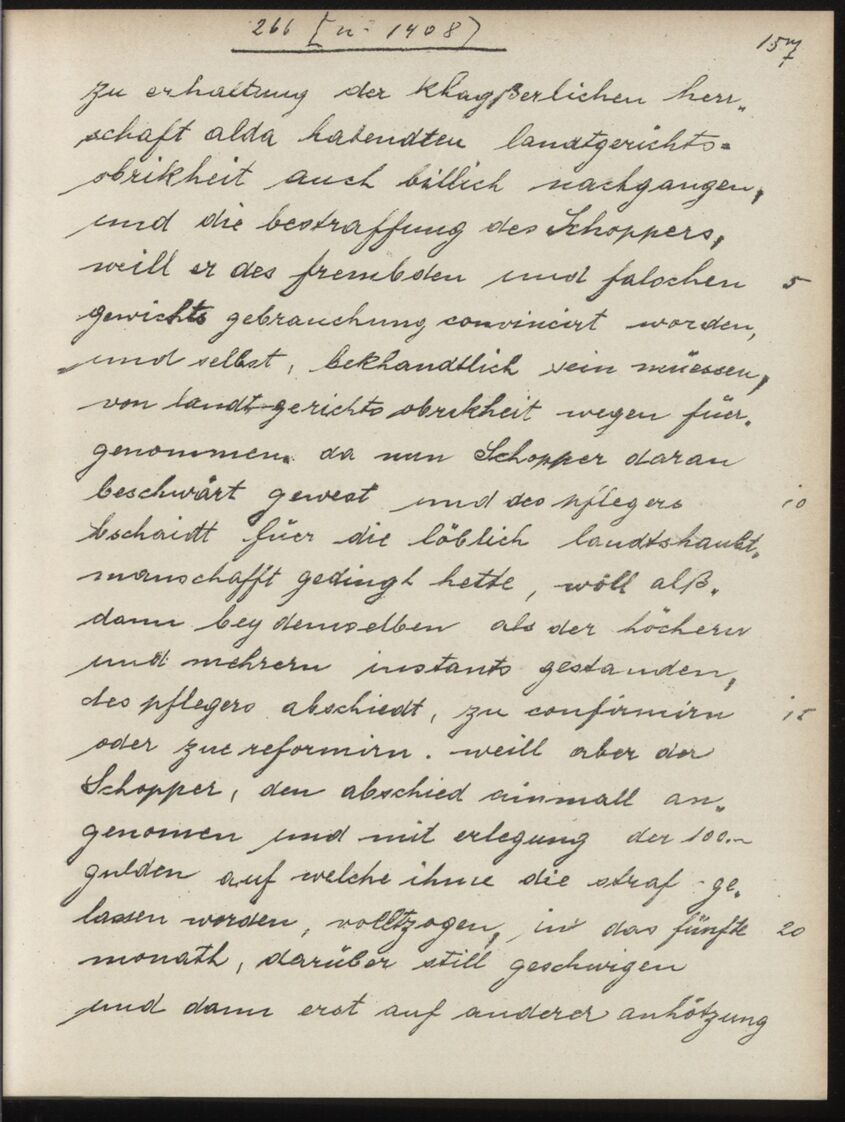 266 [n. 1408]
157
zu erhaltung der Khagßerlichen herr„
schaft alda habendten landtgerichts=
obrikheit auch billich nachgangen,
und die bestraffung des Schoppers,
weill er des frembden und falschen 5
gewichts gebrauchung convincirt worden,
und selbst, bekhandtlich sein müessen,
von landtgerichts obrikheit wegen füer„
genommen. da nun Schopper daran
beschwärt gewest und des pflegers 10
bschaidt füer die löblich landtshaubt„
manschafft gedingt hette, wöll alß„
dann bey demselben als der höchern
und mehrern instants gestanden,
des pflegers abschiedt, zu confirmirn 15
oder zue reformirn. weill aber der
Schopper, den abschied ainmall an„
genomen und mit erlegung der 100.
gulden auf welche ihme die straf ge„
lassen worden, volltzogen, in das fünfte 20
monath, darüber still geschwigen
und dann erst auf anderer anhötzung